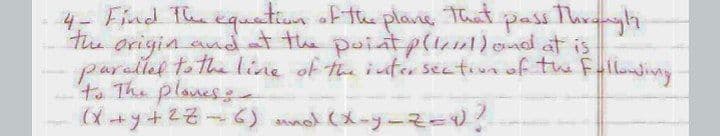 4- Find The equation of the plane That pass Through
the origin and at the point p(1,1,1) and at is
parallel to the line of the intersection of the Following
to The planes:-
(x+y+2z-6) and (x-y-z=4)?